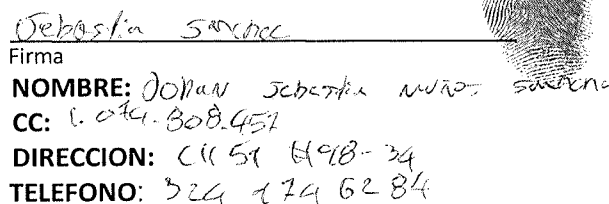 Sebastian Sanchez
Firma
NOMBRE: Johan Sebastian Muñoz Sanchez
CC: 1.074.808.451
DIRECCION: Cll 51 #98-34
TELEFONO: 324 174 6284